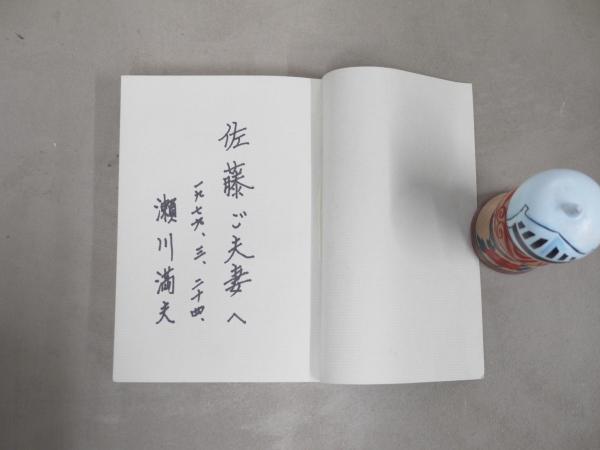 佐藤ご夫妻へ
一九七六、三、二十四、
瀬川満夫